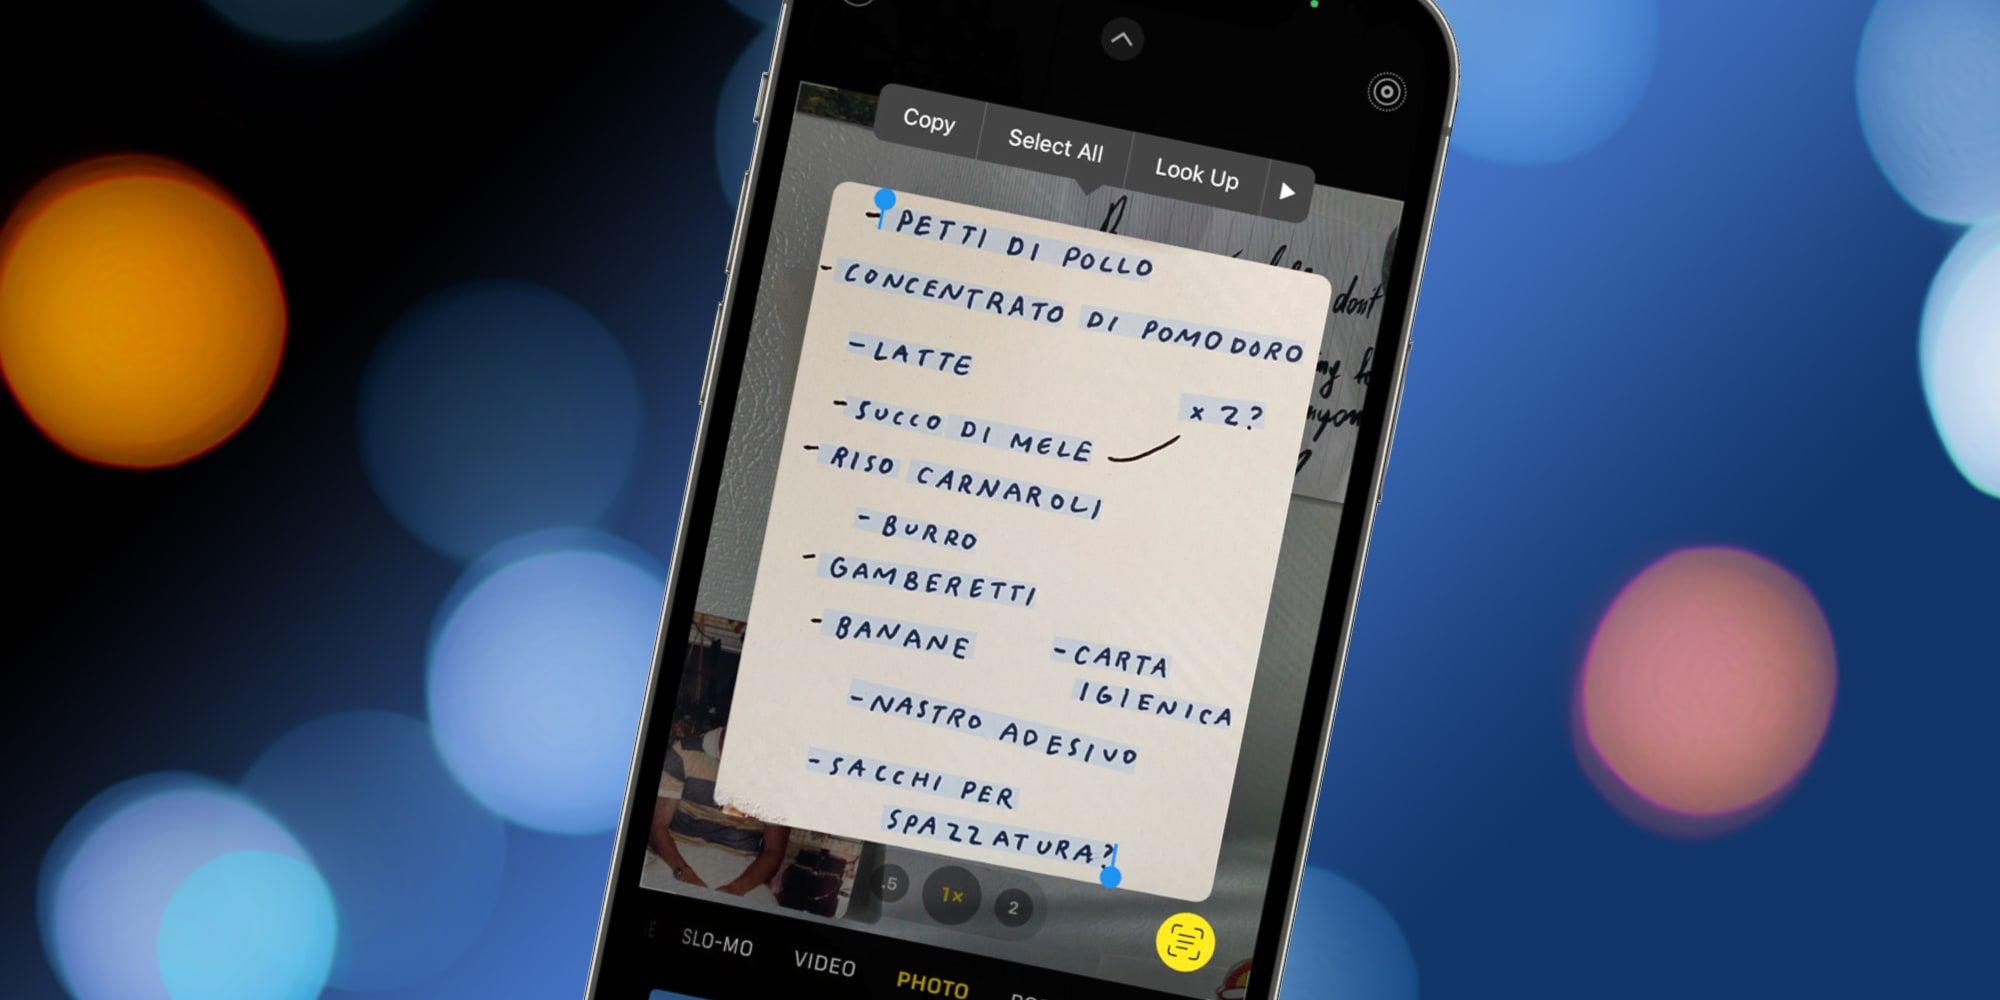 Copy Select All Look Up
- PETTI DI POLLO
- CONCENTRATO DI POMODORO
- LATTE
x 2?
- SUCCO DI MELE
- RISO CARNAROLI
- BURRO
- GAMBERETTI
- BANANE
- CARTA
IGIENICA
- NASTRO ADESIVO
- SACCHI PER
SPAZZATURA?
don't
.5 1× 2
SLO-MO VIDEO PHOTO